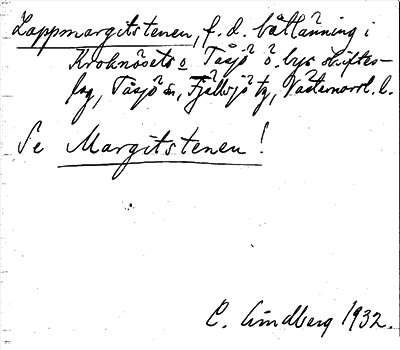 Lappmargitstenen, f. d. båtlänning i
Kroknäsets o Tåsjö ö. bys skiftes-
lag, Tåsjö sn, Fjällsjö tg, Västernorrl. l.
Se Margitstenen!
C. Lindberg 1932.